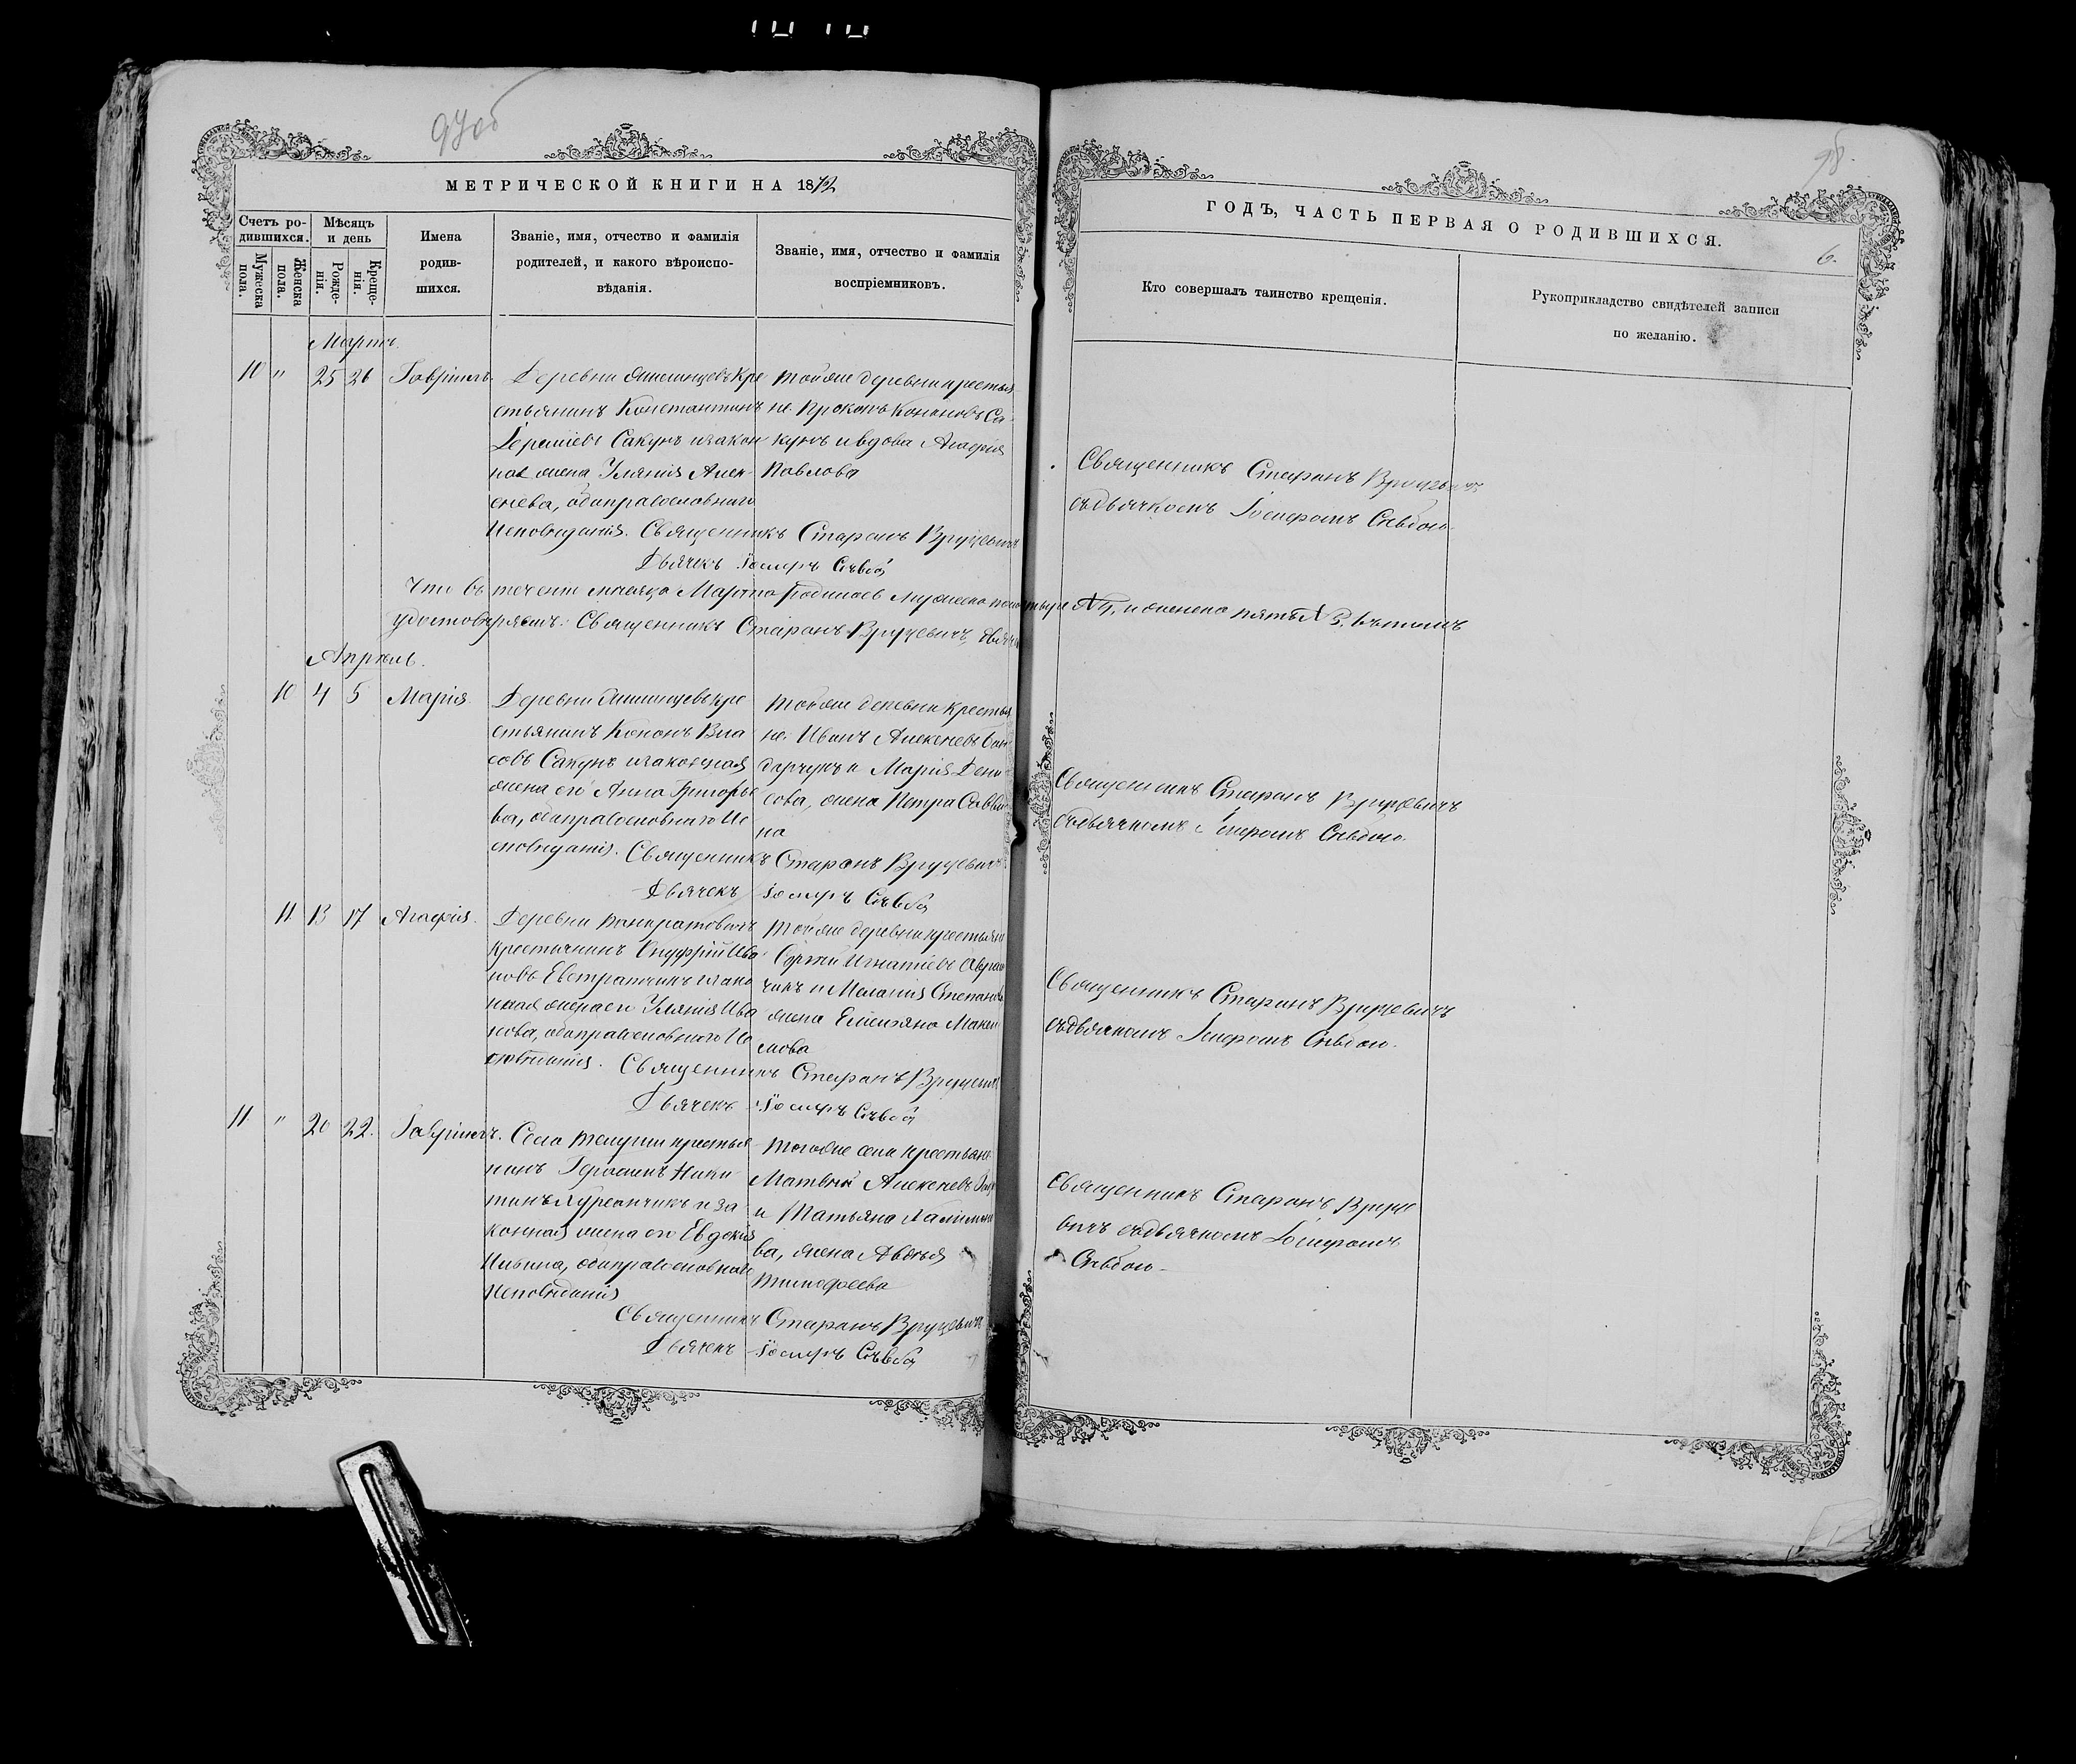 97об
МЕТРИЧЕСКОЙ КНИГИ НА 1872
Счетъ ро-
дившихся.
Мужеска
пола.
Женска
пола.
Мѣсяцъ
и день
Рожде-
нія.
Креще-
нія.
Имена
родив-
шихся.
Званіе, имя, отчество и фамилія
родителей, и какого вѣроиспо-
вѣданія.
Званіе, имя, отчество и фамилія
воспріемниковъ.
Мартъ.
10 " 25 26 Гавріилъ.
Деревни Кре
стьянинъ Константинъ
Сакунъ изакон
ная жена Уліянія Алек-
сеева, оба православнаго
Исповѣданія. Священникъ Стефанъ Вруцевичъ
Дьячекъ Іосифъ Сѣвба
Той же деревни крестья
не Прокопъ Кононовъ Са-
кунъ и вдова Агафія
Павлова
Что въ теченіи месяца Марта родилось мужеска пола
удостовѣряемъ: Священникъ Стефанъ Вруцевичъ,
Апрель.
10 4 5 Марія.
Деревни кре
стьянинъ Кононъ Вла
совъ Сакунъ и законная
жена его Анна Григорье
ва, оба православнаго Ис
повѣданія. Священникъ Стефанъ Вруцевичъ
Дьячекъ Іосифъ Сѣвба
Той же деревни крестья
не Иванъ Алексеевъ Бон
дарчукъ и Марія Дени
сова, жена Петра Савви
на
11 13 17 Агафія.
Деревни Панкратовичъ
крестьянинъ Онуфрій Ива
новъ Евстратчикъ и зако
нная жена его Уліянія Ива
нова, оба православнаго Ис
повѣданія. Священникъ Стефанъ Вруцевичъ
Дьячекъ Іосифъ Сѣвба
Той же деревни крестьяне
Сергій Игнатіевъ
чикъ и Меланія Степанова
жена Емельяна Макси
мова
11 " 20 22. Гавріилъ.
Села крестья
нинъ Герасимъ Ники-
тинъ и за
конная жена его Евдокія
оба православнаго
Исповѣданія
Священникъ Стефанъ Вруцевичъ
Дьячекъ Іосифъ Сѣвба
Того же села крестьяне
Матвѣй Алексеевъ
и Татьяна
ва, жена Авдѣя
Тимофеева
98.
ГОДЪ, ЧАСТЬ ПЕРВАЯ О РОДИВШИХСЯ.
6.
Кто совершалъ таинство крещенія.
Рукоприкладство свидѣтелей записи
по желанію.
Священникъ Стефанъ Вруцевичъ
съ дьячкомъ Іосифомъ Сѣвбою.
и женска пять № 5, въ томъ
Священникъ Стефанъ Вруцевичъ
съ дьячкомъ Іосифомъ Сѣвбою.
Священникъ Стефанъ Вруцевичъ
съ дьячкомъ Іосифомъ Сѣвбою.
Священникъ Стефанъ Вруце
вичъ съ дьячкомъ Іосифомъ
Сѣвбою.